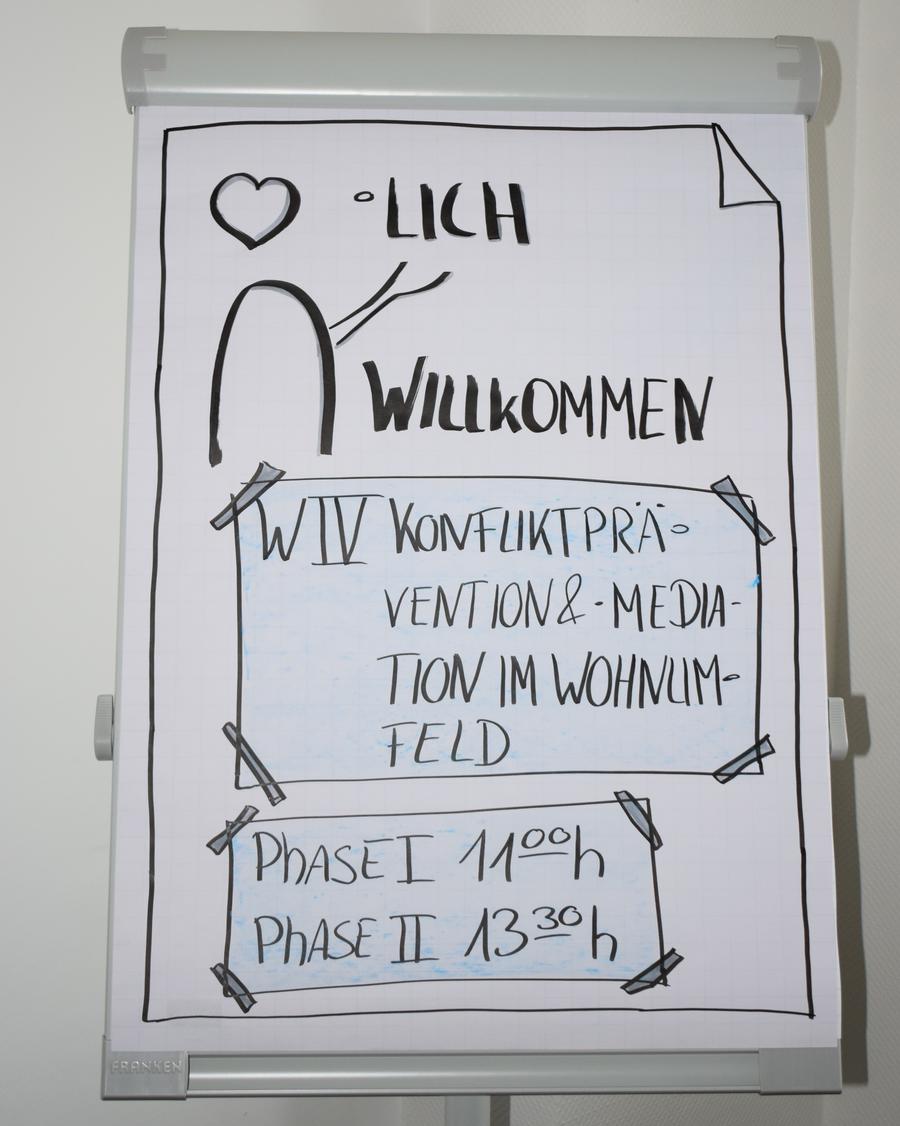 -LICH
WILLKOMMEN
W IV KONFLIKTPRÄ-
VENTION & - MEDIA-
TION IM WOHNUM-
FELD
PhASE I 11⁰⁰h
PhASE II 13³⁰h
FRANKEN